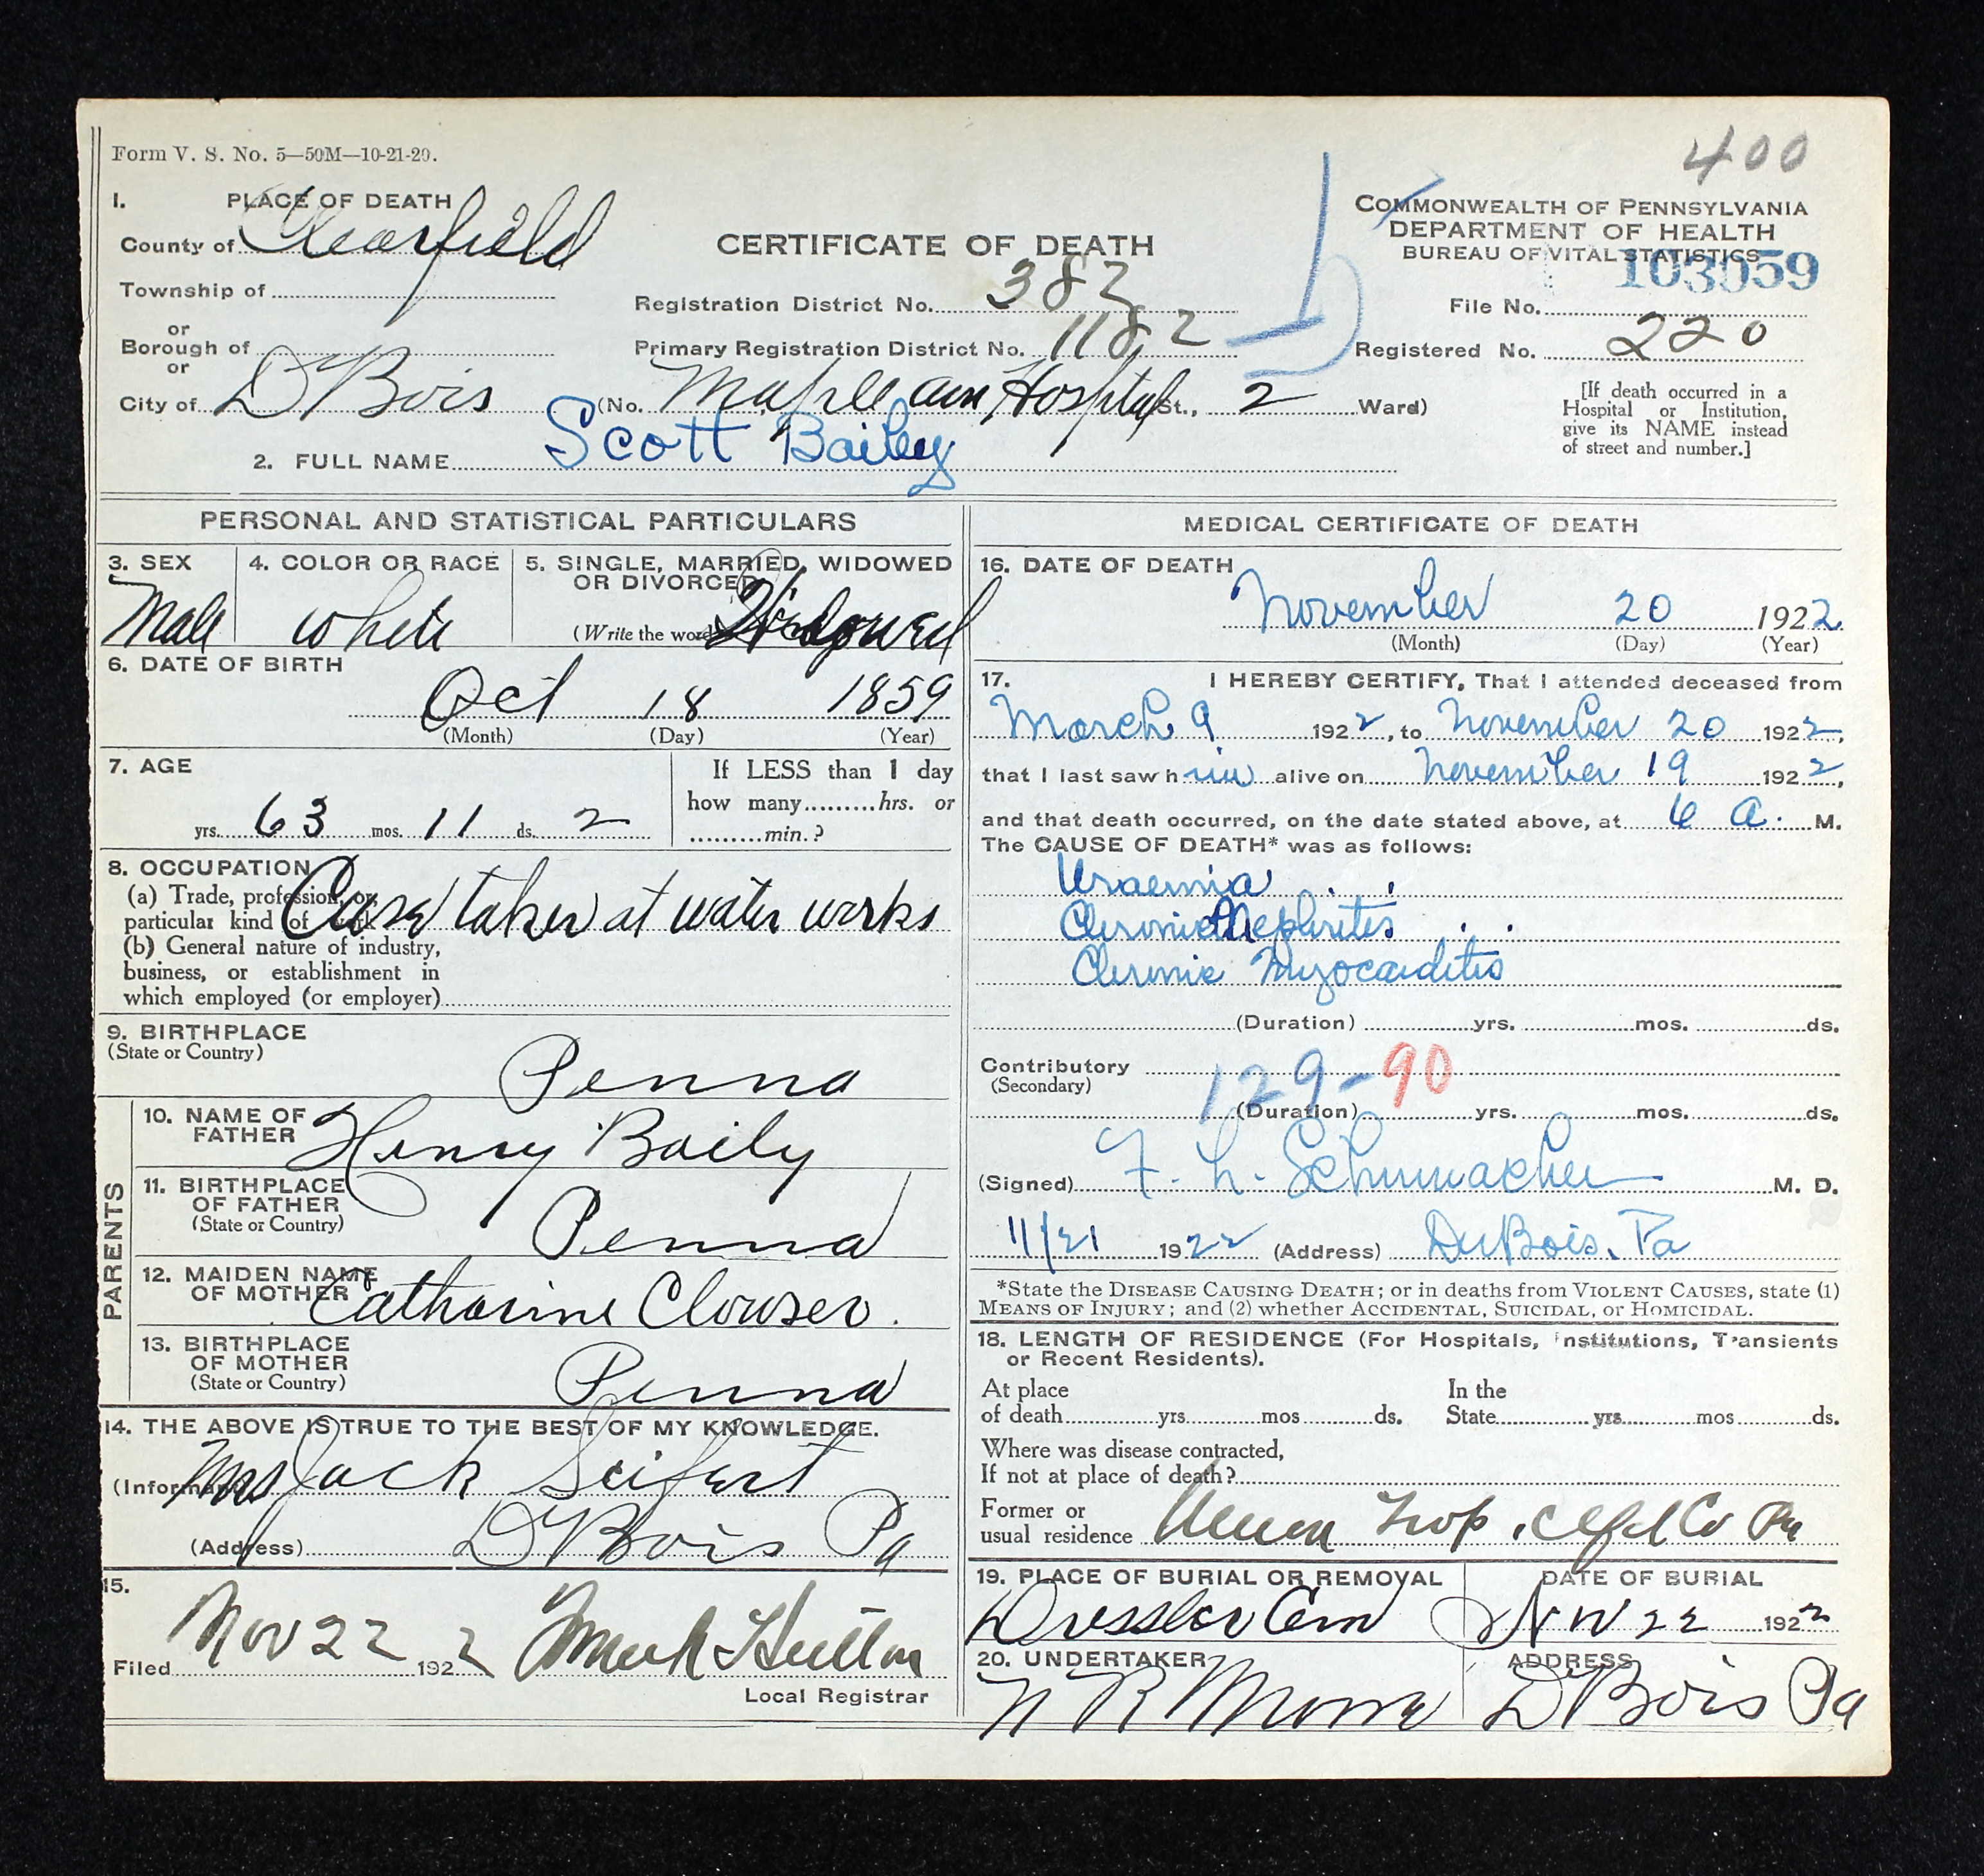 400
Form V. S. No. 5—50M—10-21-20.
1. PLACE OF DEATH
County of Clearfield
Township of
or
Borough of
or
City of DBois
CERTIFICATE OF DEATH
Registration District No. 382
Primary Registration District No. 1182
(No. Hospital St., 2 Ward)
COMMONWEALTH OF PENNSYLVANIA
DEPARTMENT OF HEALTH
BUREAU OF VITAL STATISTICS
103059
File No.
Registered No. 220
[If death occurred in a
Hospital or Institution,
give its NAME instead
of street and number.]
2. FULL NAME Scott Bailey
PERSONAL AND STATISTICAL PARTICULARS
3. SEX
Male
4. COLOR OR RACE
white
5. SINGLE, MARRIED, WIDOWED
OR DIVORCED
(Write the word) Widowed
6. DATE OF BIRTH
Oct 18 1859
(Month) (Day) (Year)
7. AGE
yrs. 63 mos. 11 ds. 2
If LESS than 1 day
how many.........hrs. or
.........min.?
8. OCCUPATION
(a) Trade, profession, or
particular kind of work
taker at water works
(b) General nature of industry,
business, or establishment in
which employed (or employer)
9. BIRTHPLACE
(State or Country)
Penna
PARENTS
10. NAME OF
FATHER
Henry Baily
11. BIRTHPLACE
OF FATHER
(State or Country)
Penna
12. MAIDEN NAME
OF MOTHER
Catharine Clowser.
13. BIRTHPLACE
OF MOTHER
(State or Country)
Penna
14. THE ABOVE IS TRUE TO THE BEST OF MY KNOWLEDGE.
(Informant) Mrs Jack Seifert
(Address) DBois Pa
15.
Filed Nov 22 1922
Local Registrar
MEDICAL CERTIFICATE OF DEATH
16. DATE OF DEATH
November 20 1922
(Month) (Day) (Year)
17. I HEREBY CERTIFY, That I attended deceased from
March 9 1922, to November 20 1922,
that I last saw him alive on November 19 1922,
and that death occurred, on the date stated above, at 6 A. M.
The CAUSE OF DEATH* was as follows:
Uraemia
Chronic Nephritis
Chronic Myocarditis
(Duration) yrs. mos. ds.
Contributory
(Secondary)
129-90
(Duration) yrs. mos. ds.
(Signed) F. L. Schumacher M. D.
11/21 1922 (Address) DuBois, Pa
*State the DISEASE CAUSING DEATH; or in deaths from VIOLENT CAUSES, state (1)
MEANS OF INJURY; and (2) whether ACCIDENTAL, SUICIDAL, or HOMICIDAL.
18. LENGTH OF RESIDENCE (For Hospitals, Institutions, Transients
or Recent Residents).
At place
of death yrs. mos ds.
In the
State yrs. mos ds.
Where was disease contracted,
If not at place of death?
Former or
usual residence Clfd Co Pa
19. PLACE OF BURIAL OR REMOVAL
Dressler Cem
DATE OF BURIAL
Nov 22 1922
20. UNDERTAKER
ADDRESS
DBois Pa